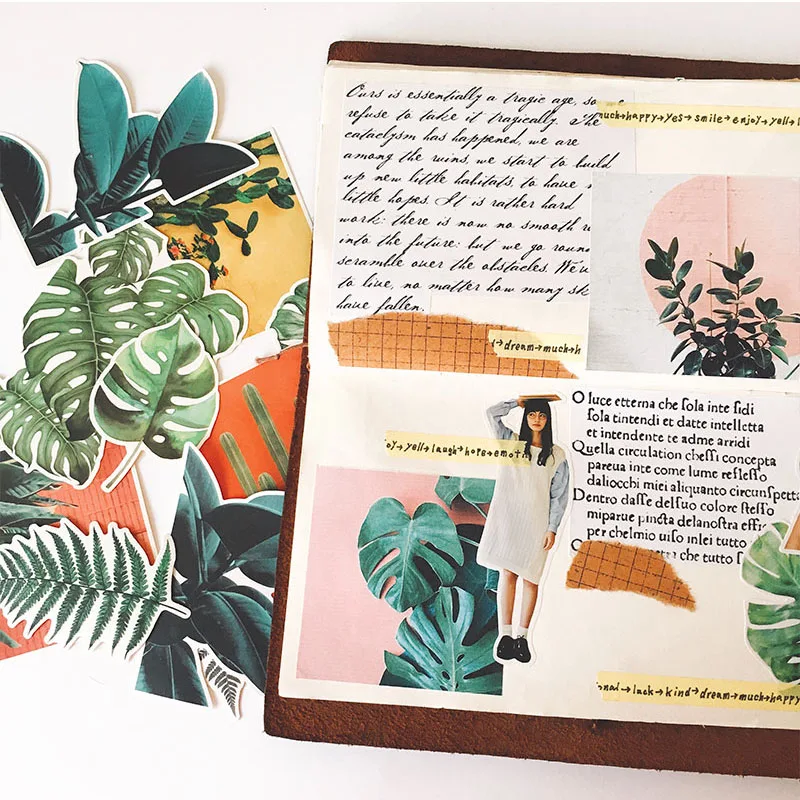 Ours is essentially a tragic age, so we
refuse to take it tragically. The
cataclysm has happened, we are
among the ruins, we start to build
up new little habitats, to have
little hopes. It is rather hard
work: there is now no smooth
into the future: but we go roun
scramble over the obstacles. We'v
to live, no matter how many sk
have fallen.
much→happy→yes→smile→enjoy→yell→l
→dream→much→h
oy→yell→laugh→hope→emoti
O luce etterna che sola inte sidi
sola tintendi et datte intelletta
et intendente te adme arridi
Quella circulation chessi concepta
pareua inte come lume reflesso
daliocchi miei aliquanto circunspetta
Dentro dasse delsuo colore stesso
miparue pincta delanostra effi
per chelmio uiso inlei tutto
che tutto s
onal→luck→kind→dream→much→happy